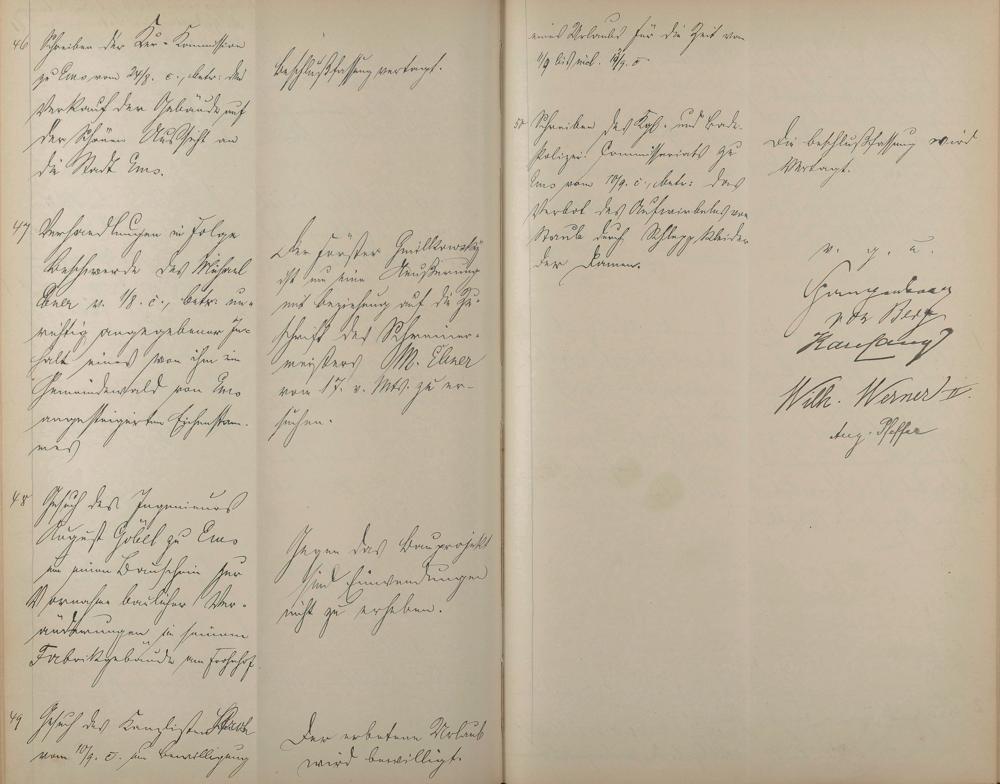 46
Schreiben der Kur-Kommission
zu Ems vom 24/8. c., betr: den
Verkauf der Gebäude auf
der schönen Aussicht an
die Stadt Ems.
Beschlußfassung vertagt.
47
Verhandlungen in Folge
Beschwerde des Michael
Ebner v. 1/8. c., betr: un-
richtig angegebener In-
halt eines von ihm im
Gemeindewald von Ems
angesteigerten Eichenstam-
mes
Der Förster
ist um eine Äußerung
mit Beziehung auf die Zu-
schrift des Schreiner-
meisters M. Ebner
vom 17. v. Mts. zu er-
suchen.
48
Gesuch des Ingenieurs
August Göbel zu Ems
um einen Bauschein zur
Vornahme baulicher Ver-
änderungen in seinem
Fabrikgebäude am Frohnhof
Gegen das Bauprojekt
sind Einwendungen
nicht zu erheben.
49
Gesuch des Kanzlisten
vom 10/9. c. um Bewilligung
Der erbetene Urlaub
wird bewilligt.
eines Urlaubs für die Zeit vom
11/9 bis incl. 13/9. c.
50
Schreiben des Kgl. und Bade-
Polizei-Commissariats zu
Ems vom 10/9. c., betr: das
Verbot des Aufwirbelns von
Staub durch Schleppkleider
der Damen.
Die Beschlußfassung wird
vertagt.
v. g. u.
Kauffang
Wilh. Werner II.
Aug. Pfeffer